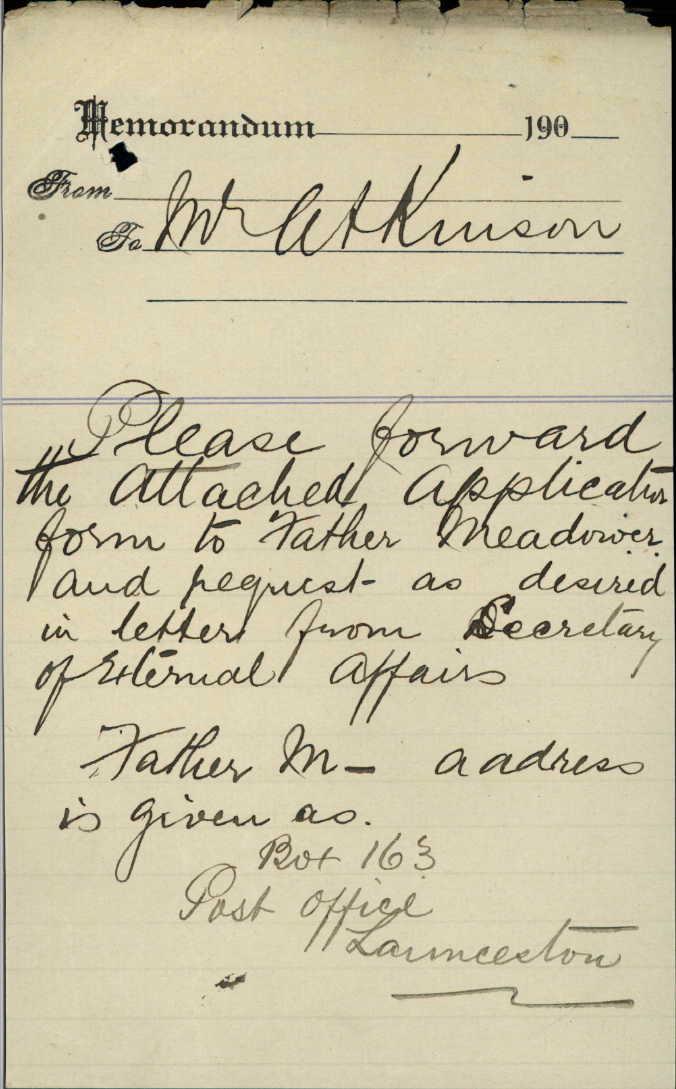 Memorandum 190
From
To Mr Atkinson
Please forward
the Attached Application
form to Father Meadower
and request as desired
in letter from Secretary
of External Affairs
Father M— aadress
is given as.
Box 163
Post Office
Launceston